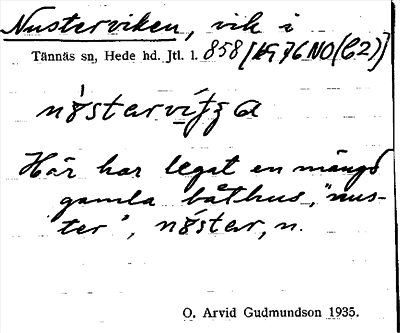 Nusterviken, vik i
Tännäs sn, Hede hd. Jtl. l. 858 [19 76 NO (C2)]
nø̀starvítʒa
Här har legat en mängd
gamla båthus, "nus-
ter", nø̀star, n.
O. Arvid Gudmundson 1935.